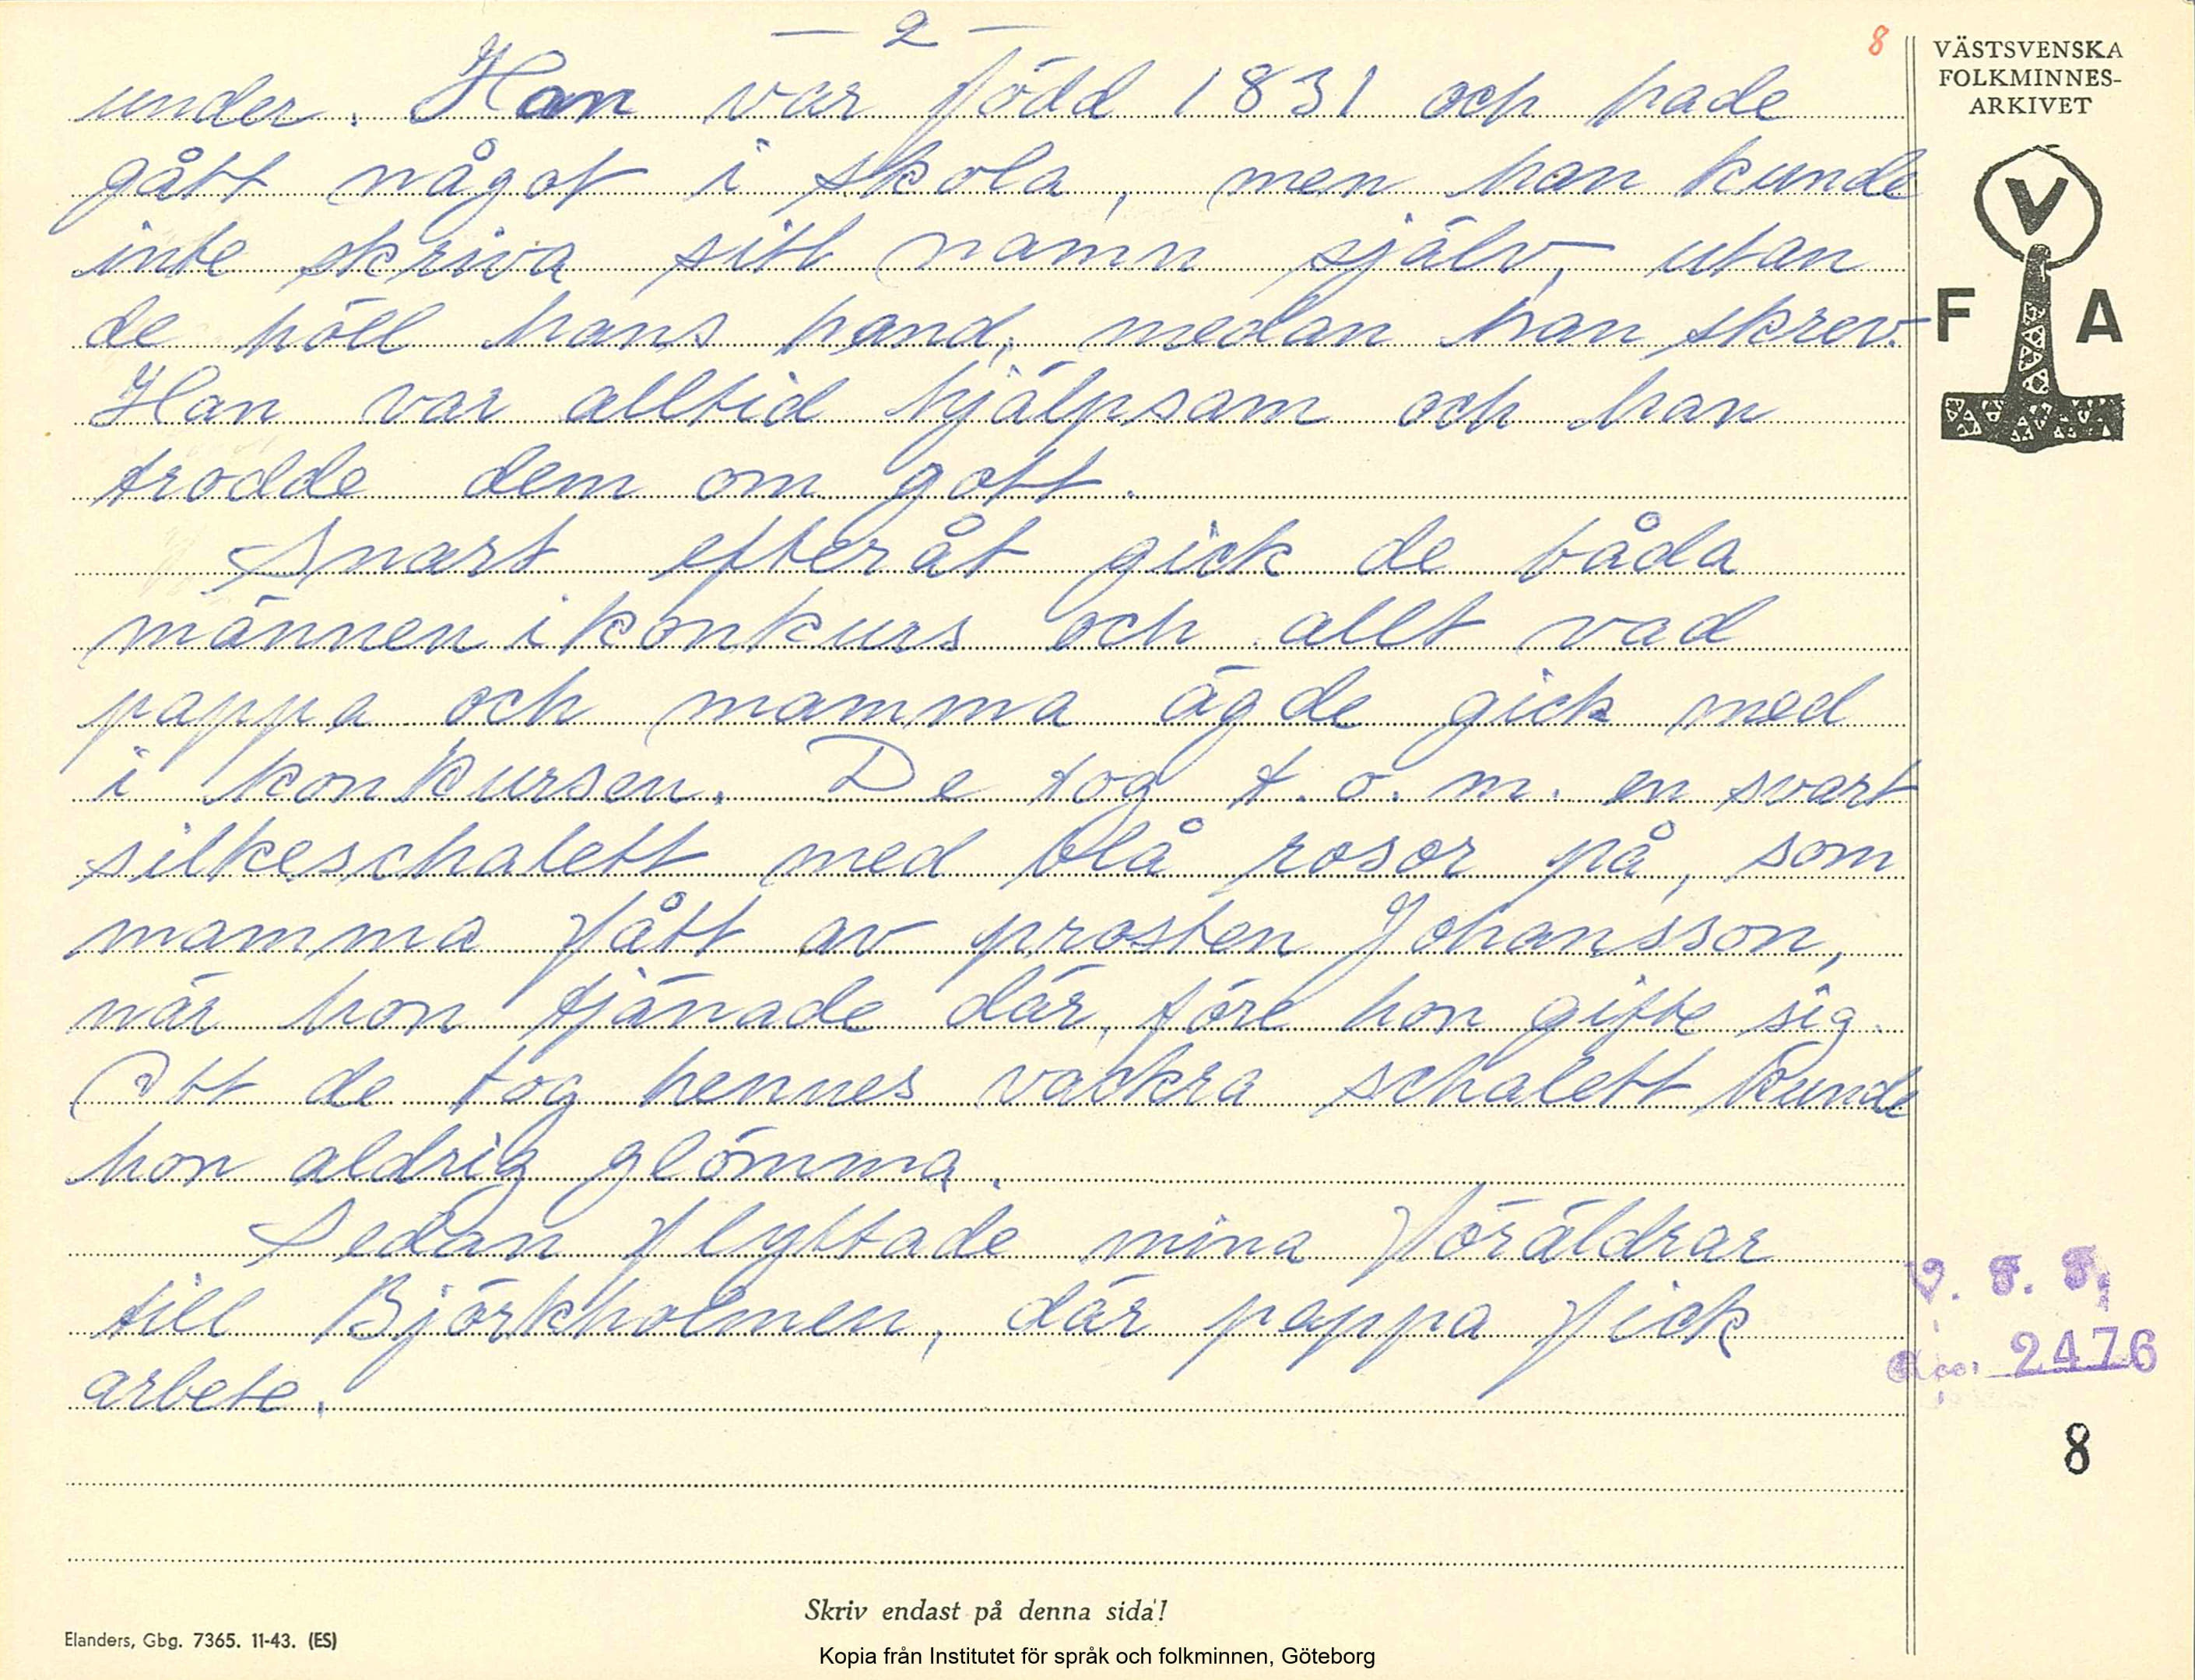 — 2 —
8
under. Han var född 1831 och hade
gått något i skola, men han kunde
inte skriva sitt namn själv, utan
de höll hans hand, medan han skrev.
Han var alltid hjälpsam och han
trodde dem om gott.
Snart efteråt gick de båda
männen i konkurs och allt vad
pappa och mamma ägde gick med
i konkursen. De tog t.o.m. en svart
silkeschalett med blå rosor på, som
mamma fått av prosten Johansson,
när hon tjänade där, före hon gifte sig.
Att de tog hennes vackra schalett kunde
hon aldrig glömma.
Sedan flyttade mina föräldrar
till Björkholmen, där pappa fick
arbete.
VÄSTSVENSKA
FOLKMINNES-
ARKIVET
V
F A
V. F. F.
Acc. 2476
8
Skriv endast på denna sida!
Elanders, Gbg. 7365. 11-43. (ES)
Kopia från Institutet för språk och folkminnen, Göteborg